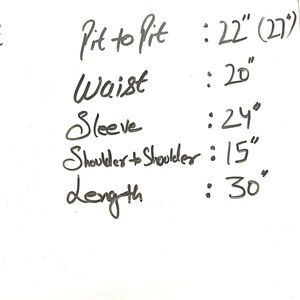 Pit to Pit : 22" (27")
Waist : 20"
Sleeve : 24"
Shoulder to Shoulder : 15"
Length : 30"